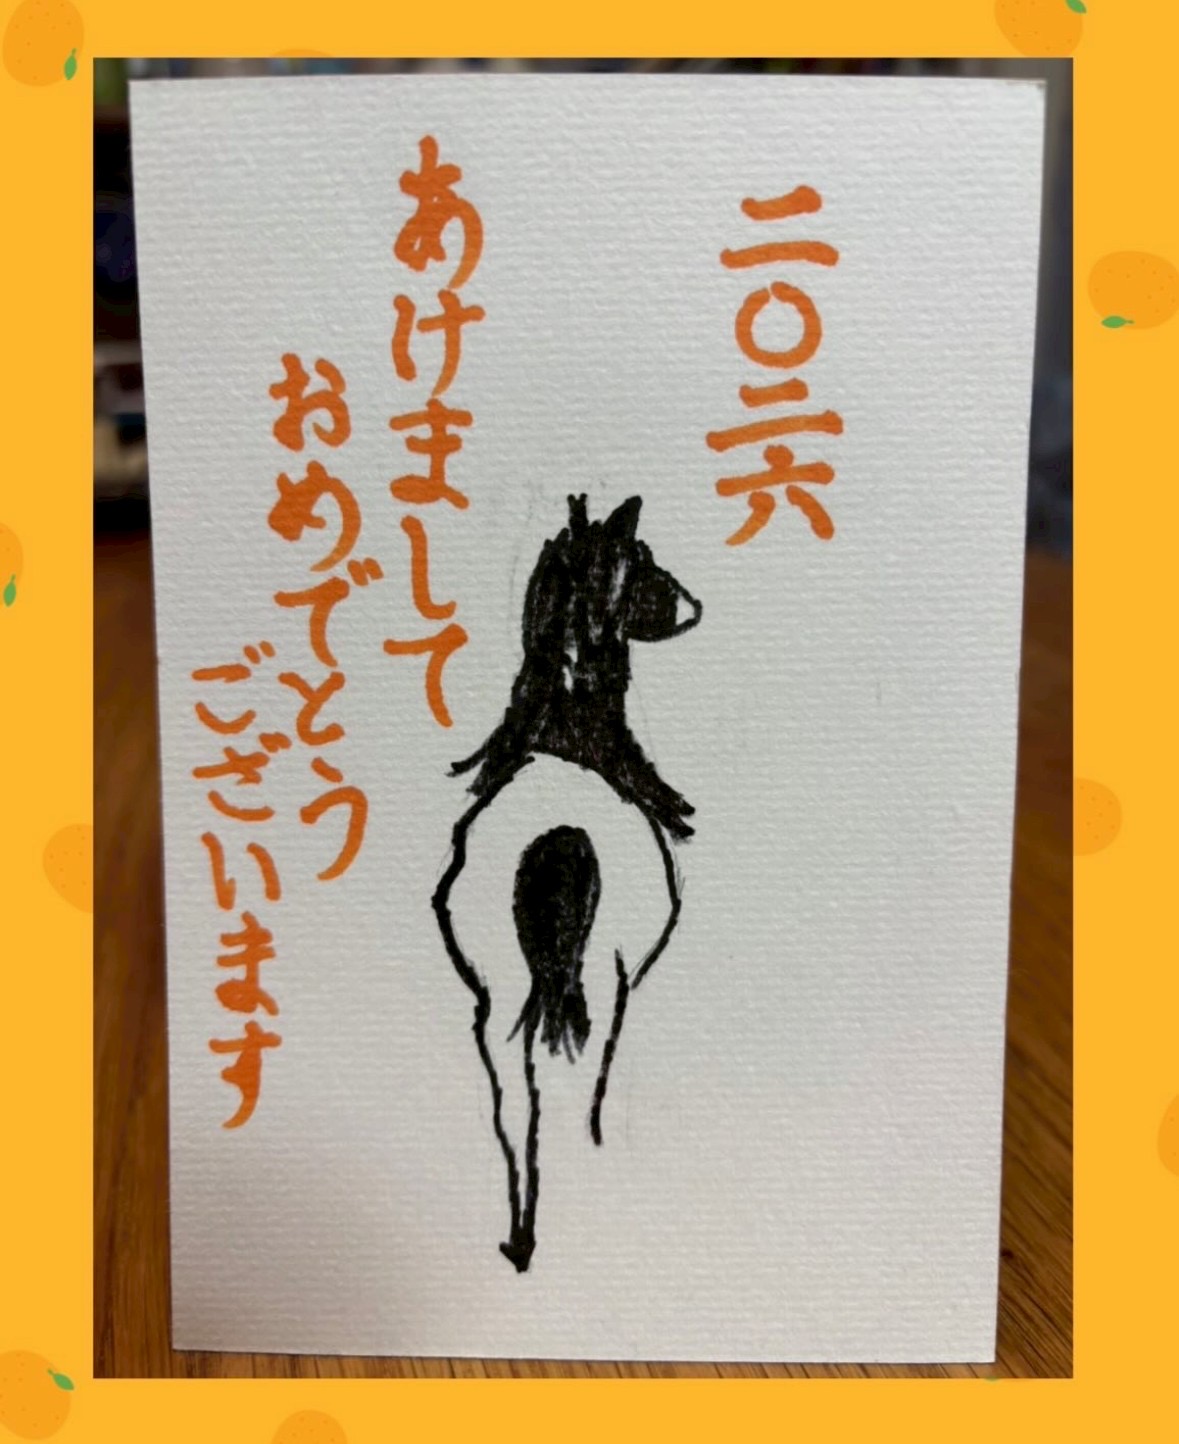 二〇二六
あけまして
おめでとう
ございます